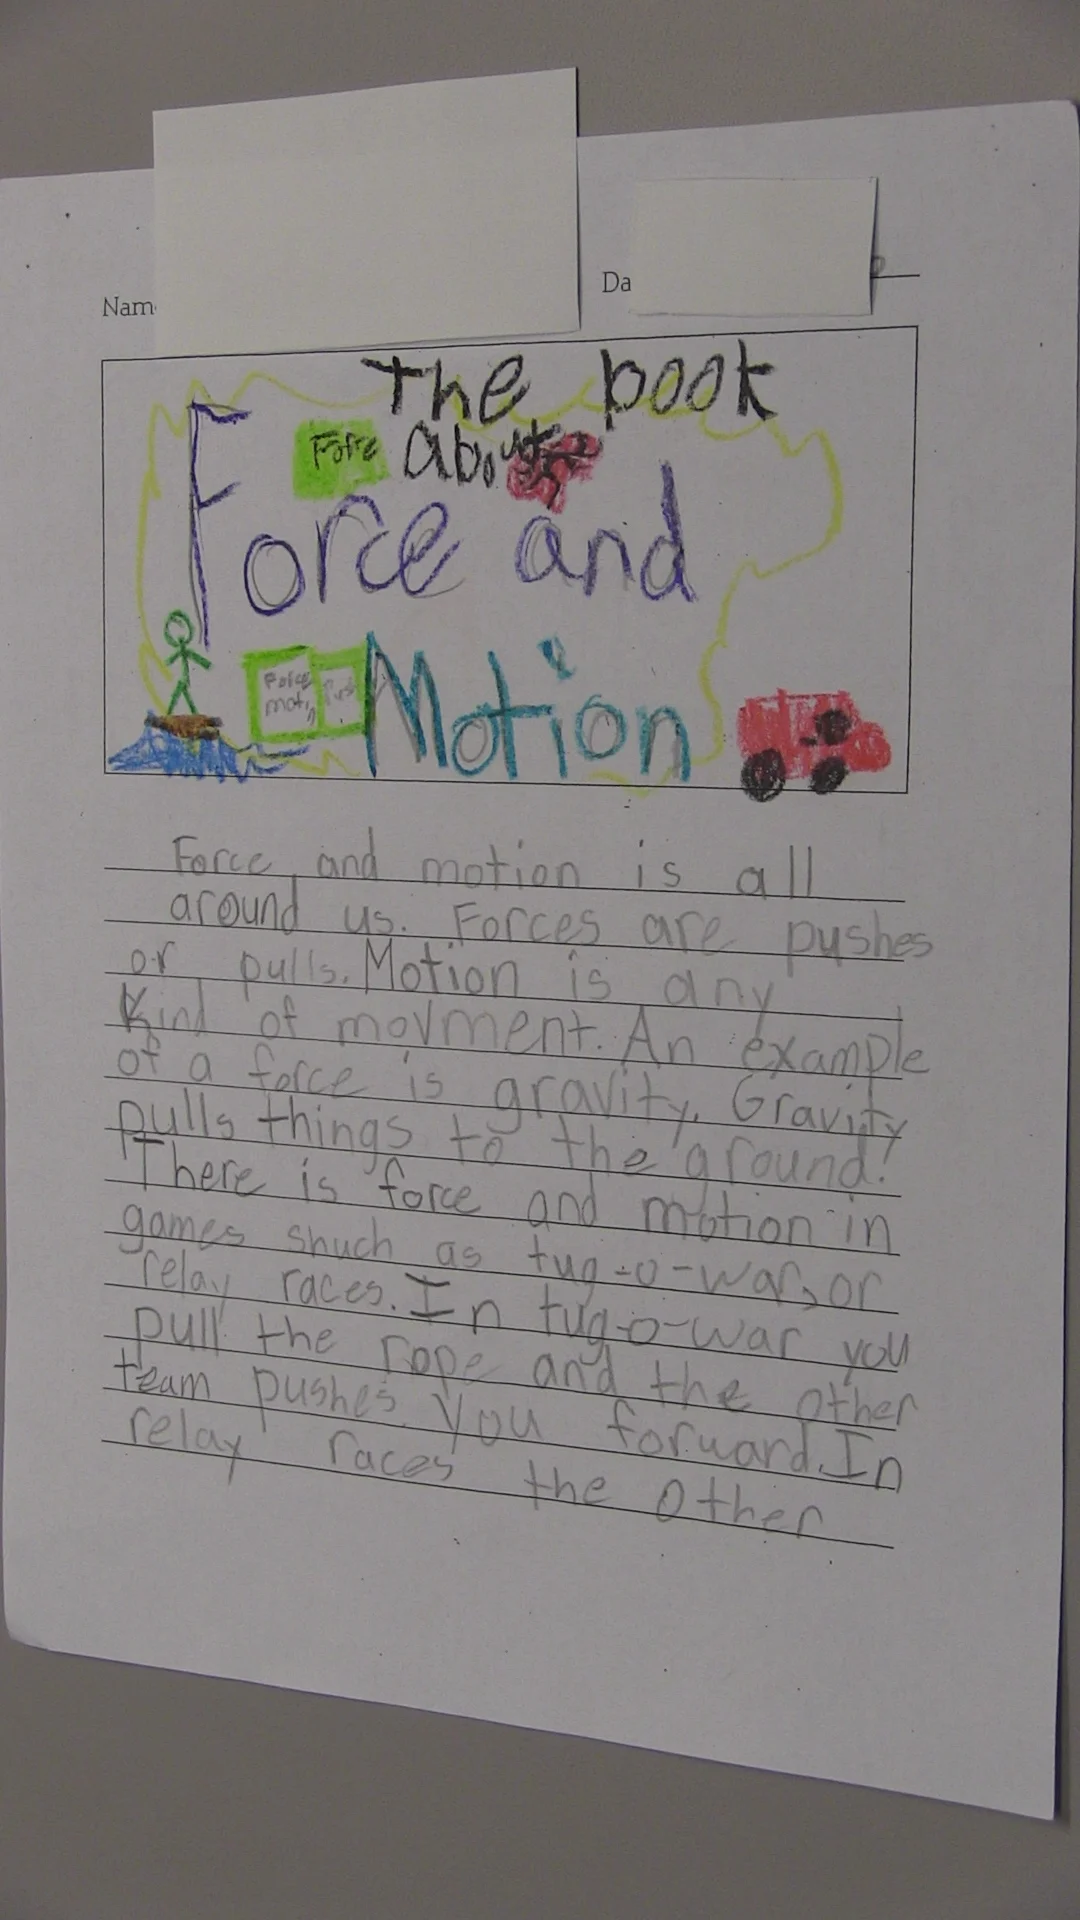 Nam
Da
The book
Force About
Force and
Force
motin Push
Motion
Force and motion is all
around us. Forces are pushes
or pulls. Motion is any
Kind of movment. An example
of a force is gravity. Gravity
pulls things to the ground!
There is force and motion in
games shuch as tug-o-war, or
relay races. In tug-o-war you
pull the rope and the other
team pushes you forward. In
relay races the other